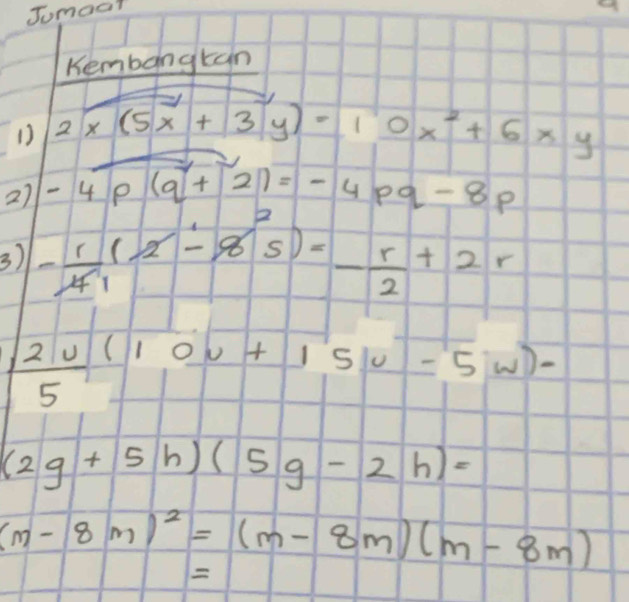 Jumaat
Kembangkan
1) 2x (5x + 3y) = 10x² + 6xy
2) - 4p (q + 2) = - 4pq - 8p
3) - r/4 1 (2 1 - 8 2 s) = - r/2 + 2r
2u/5 (10u + 15u - 5w) =
(2g + 5h) (5g - 2h) =
(m - 8m)² = (m - 8m) (m - 8m)
=